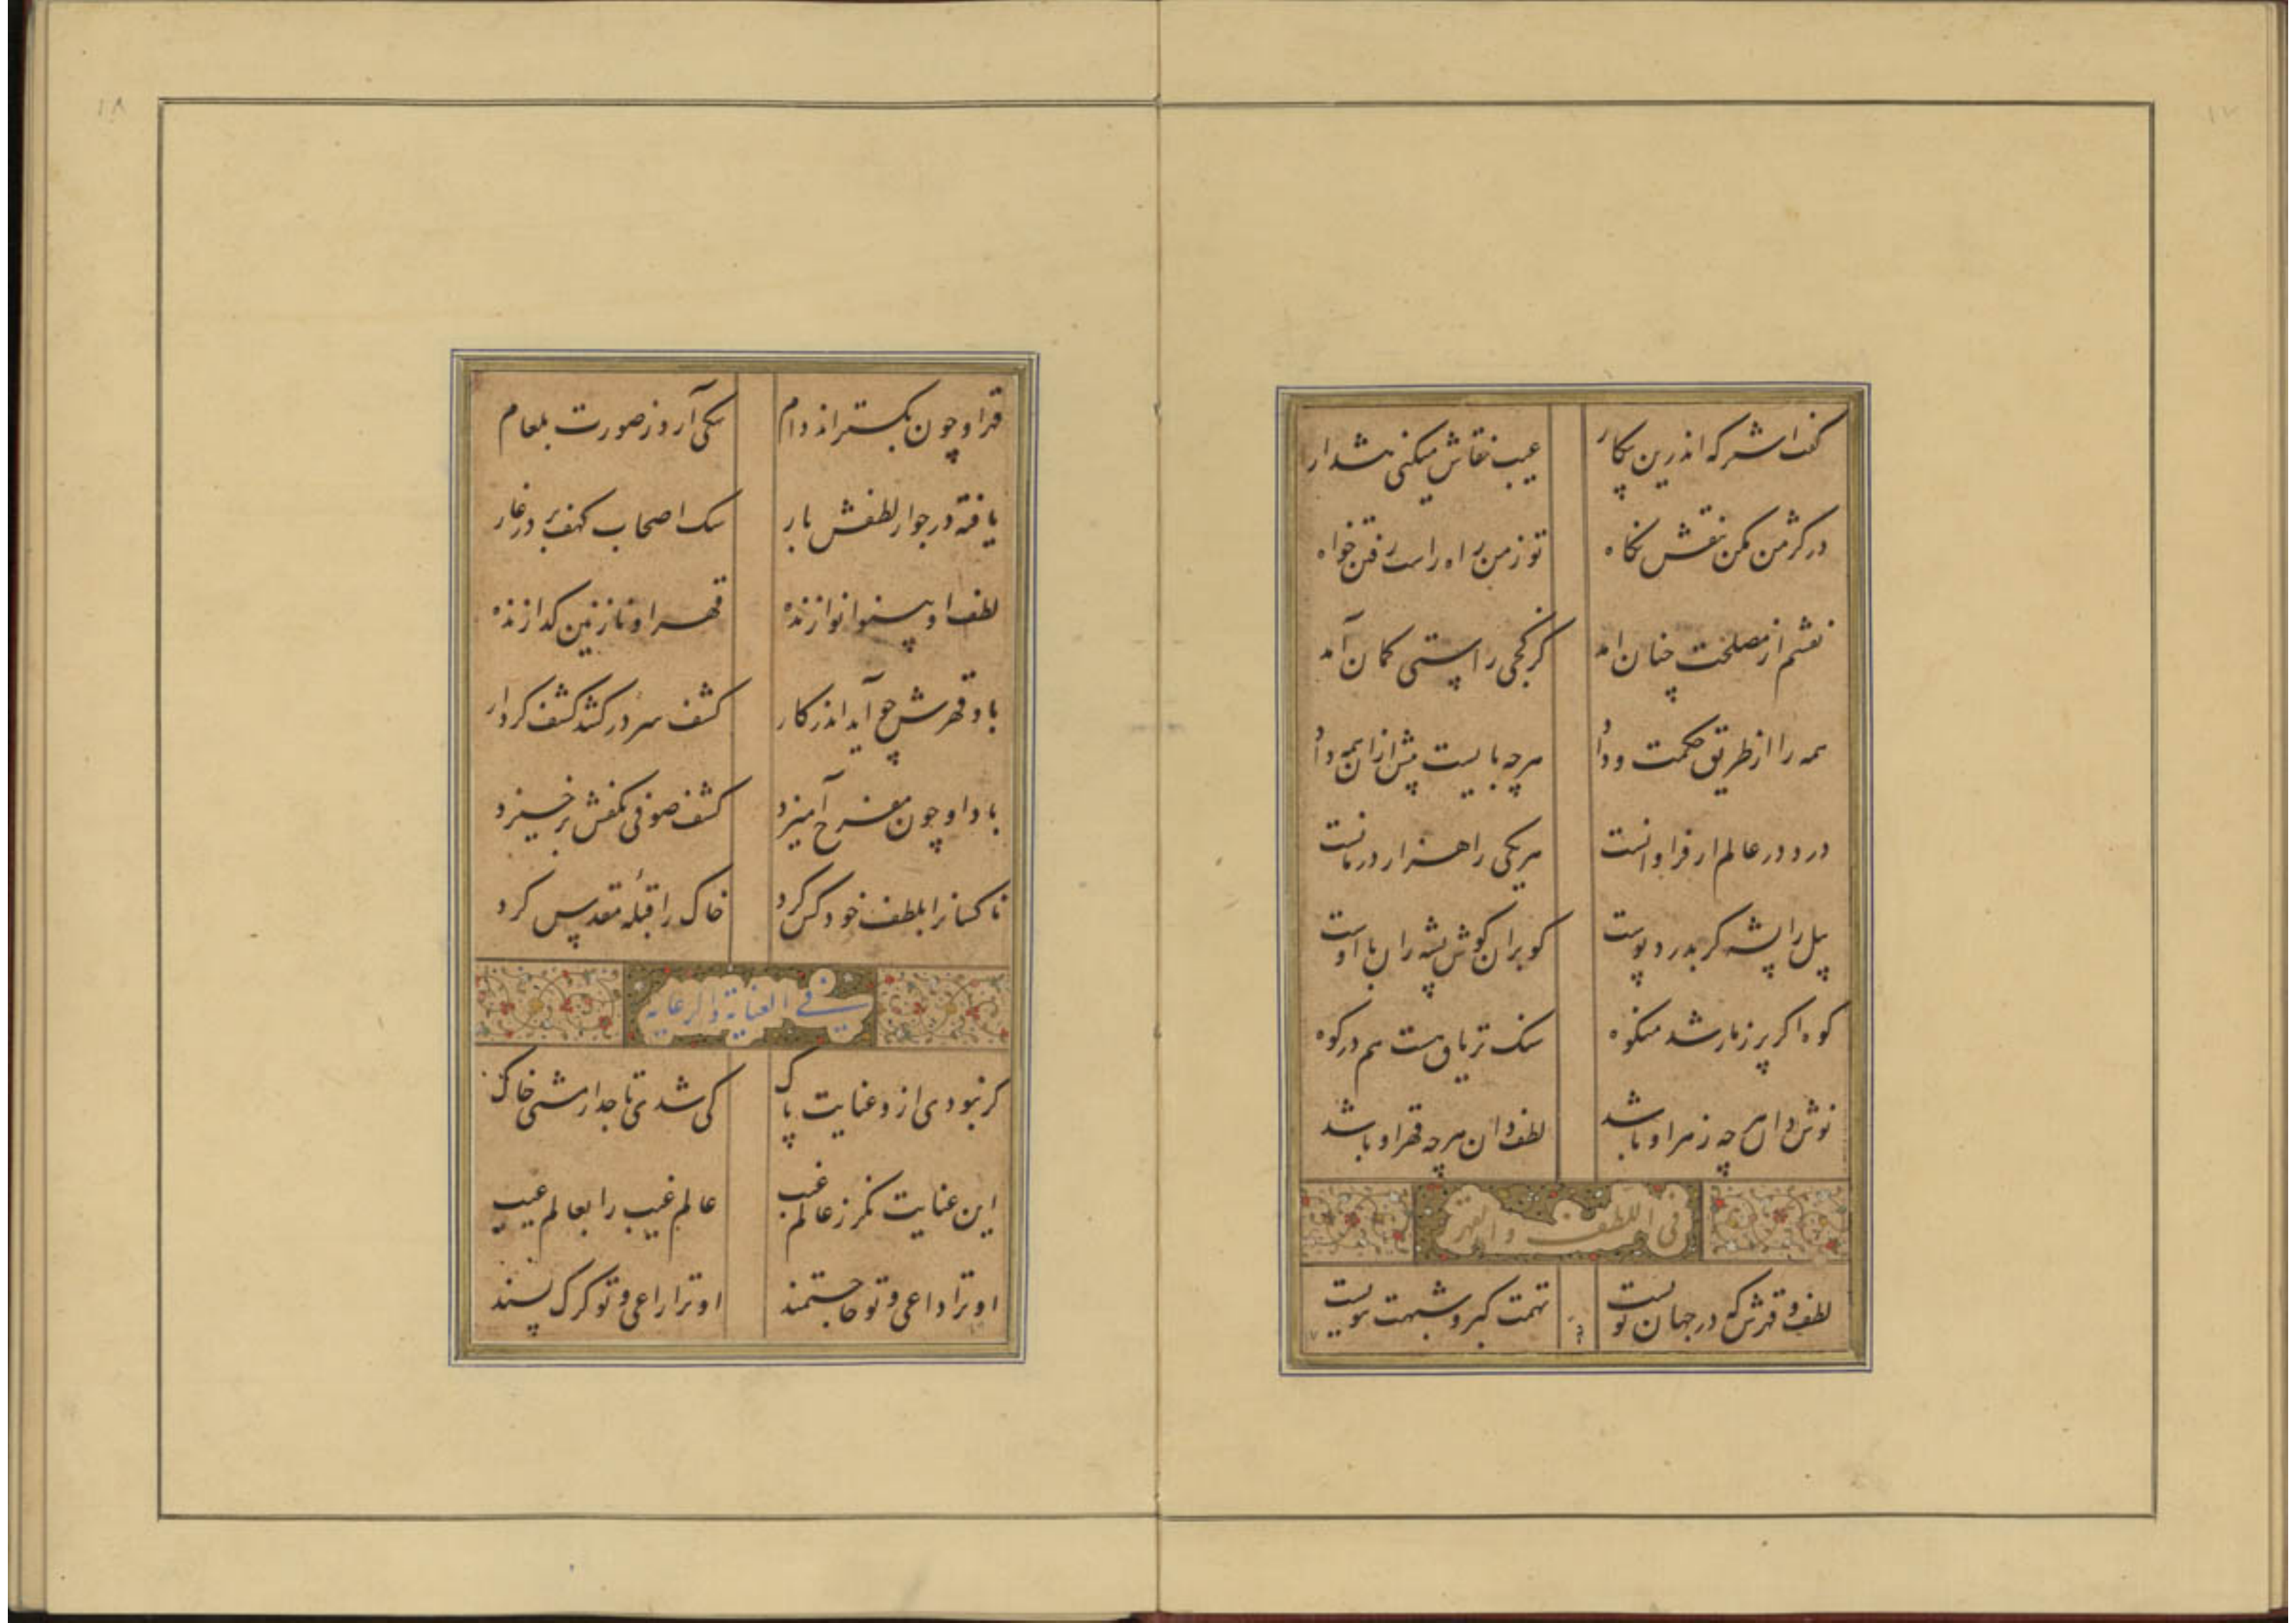 ۱۷
کفت اشتر که اندرین پیکار عیب نقاش میکنی هشدار
در کژمن مکن بنقش نکاه تو زمن راه راست رفتن خواه
نقشم از مصلحت چنان امد کز کجی راستی کمان آمد
همه را از طریق حکمت و داد هرچه بایست پیش ازان همه داد
درد در عالم ار فراوانست هر یکی را هزار درمانست
پیل را پشه کر بدرد پوست کو بران کوش پشه ران با اوست
کوه اکر پر زمار شد مشکوه سنک تریاق هست هم در کوه
نوش دان هرچه زهر او باشد لطف دان هرچه قهر او باشد
فی اللطف والقهر
لطف و قهرش که در جهان نویست تهمت کبر و شبهت ثویست
۱۸
قهر او چون بکستراند دام سکی آرد ز صورت بلعام
یافته در جوار لطفش بار سک اصحاب کهف بر در غار
لطف او بینوا نوازنده قهر او نازنین کدازنده
باد قهرش چو آید اندر کار کشف سر در کشد کشف کردار
باد او چون مفرح آمیزد کشف صوفی بکفش برخیزد
ناکسانرا بلطف خود کس کرد خاک را قبلهٔ مقدس کرد
فی العنایة والرعایه
کر نبودی ازو عنایت پاک کی شدی تاجدار مشتی خاک
این عنایت نکر ز عالم غیب عالم غیب را بعالم عیب
او ترا داعی و تو حاجتمند او ترا راعی و تو کرک پسند